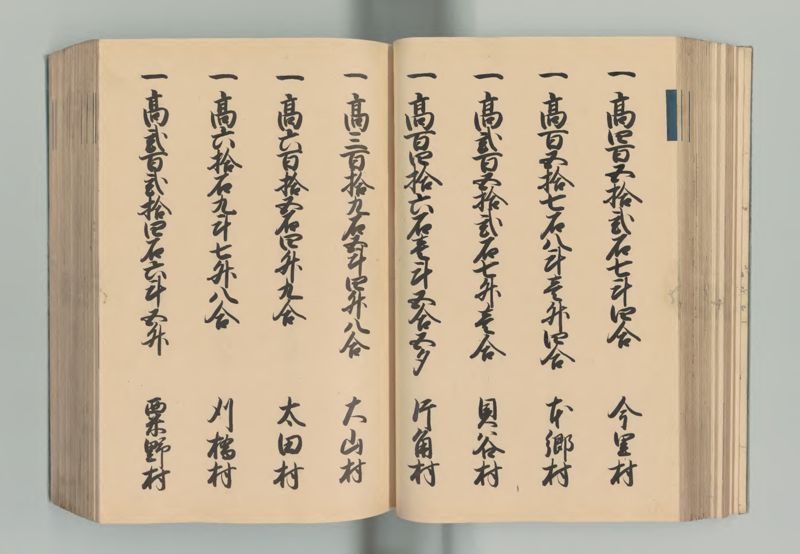 一高四百五拾弐石七斗四合 今里村
一高百五拾七石八斗壱升四合 本郷村
一高弐百五拾弐石七升壱合 貝谷村
一高百四拾六石壱斗五合五夕 片角村
一高三百拾九石五斗四升八合 大山村
一高六百拾五石四升九合 太田村
一高六拾石九斗七升八合 刈橋村
一高弐百弐拾四石六斗五升 粟野村